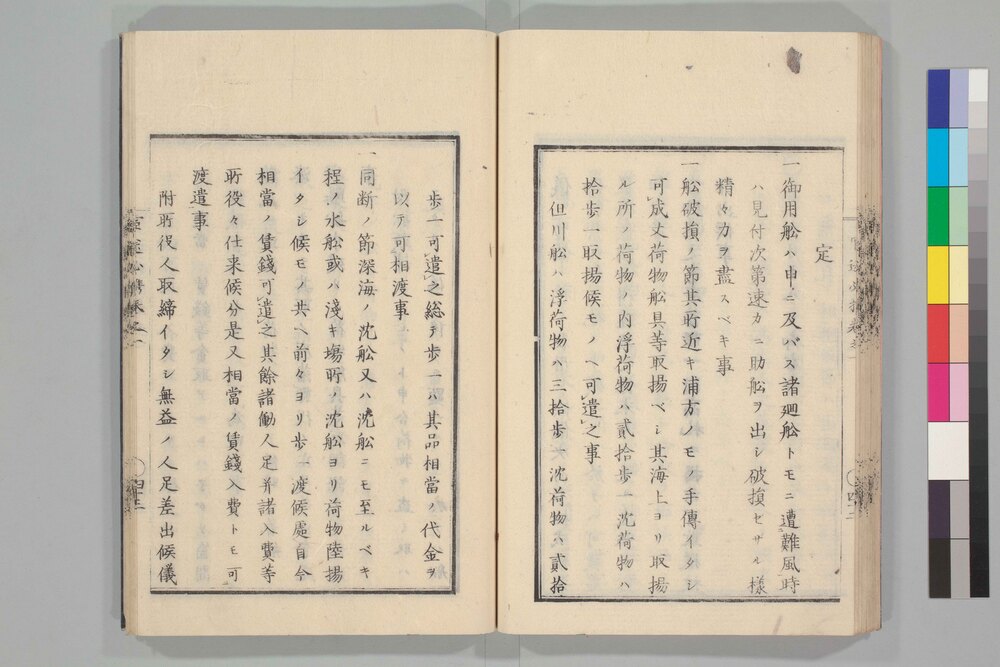 定
一御用舩ハ申ニ及バス諸廻舩トモニ遭難風時
ハ見付次第速カニ助舩ヲ出シ破損セザル様
精々力ヲ盡スベキ事
一舩破損ノ節其所近キ浦方ノモノ手傳イタシ
可成丈荷物舩具等取揚ベシ其海上ヨリ取揚
ル所ノ荷物ノ内浮荷物ハ貳拾歩一沈荷物ハ
拾歩一取揚候モノヘ可遣之事
但川舩ハ浮荷物ハ三拾歩一沈荷物ハ貳拾
歩一可遣之総テ歩一ハ其品相當ノ代金ヲ
以テ可相渡事
一同断ノ節深海ノ沈舩又ハ沈舩ニモ至ルベキ
程ノ水舩或ハ淺キ塲所ノ沈舩ヨリ荷物陸揚
イタシ候モノ共ヘ前々ヨリ歩一渡候處自今
相當ノ賃錢可遣之其餘諸働人足并諸入費等
所役々仕来候分是又相當ノ賃錢入費トモ可
渡遣事
附所役人取締イタシ無益ノ人足差出候儀